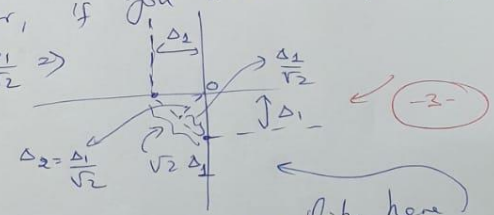 if you
Δ1
Δ1/√2
1/√2 =>
0
Δ1
-3-
Δ2 = Δ1/√2
√2 Δ1
here